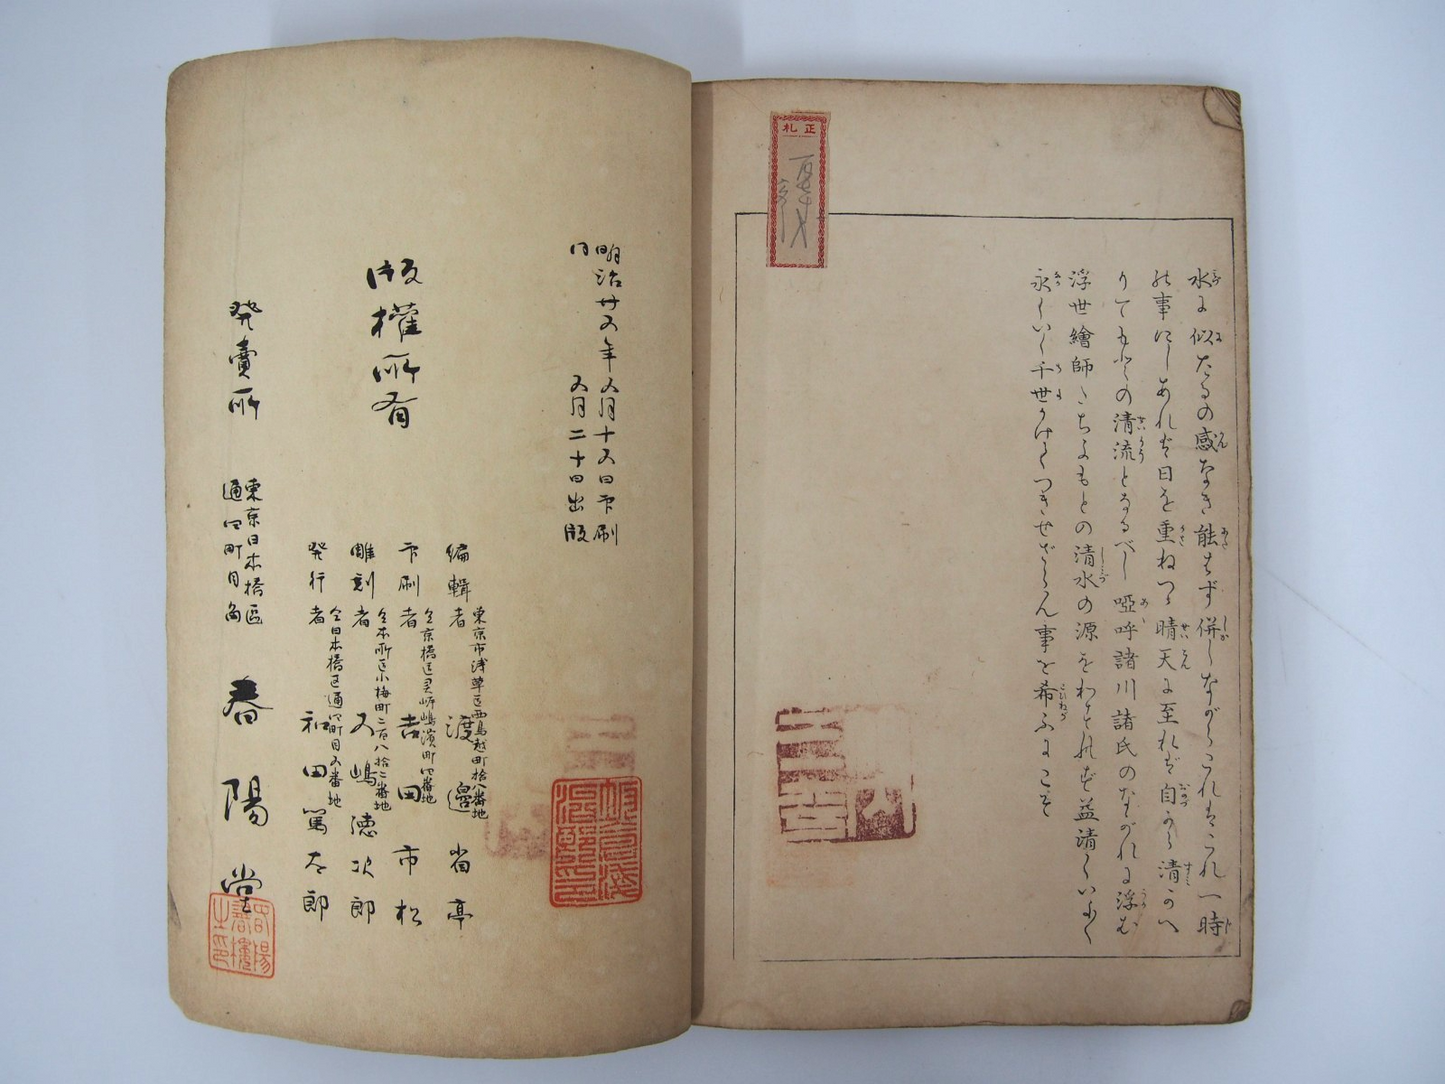 正札
水に似たるの感なき能はず併しながらこれはこれ一時
の事にしあれば日を重ねつゝ晴天に至れば自から清かへ
りてもとの清流となるべし啞呼諸川諸氏のながれに浮む
浮世繪師たちよもとの清水の源をわすれず益清くいよく
永くいく千世かけてつきせざらん事を希ふにこそ
明治廿五年五月十五日印刷
同 五月二十日出版
版權所有
編輯者 東京市浅草區西鳥越町拾八番地 渡邊省亭
印刷者 仝京橋區霊岸嶋濱町四番地 吉田市松
雕刻者 仝本所區小梅町二百八拾二番地 五嶋徳次郎
発行者 仝日本橋區通四町目五番地 和田篤太郎
発賣所 東京日本橋區
通四町目角 春陽堂